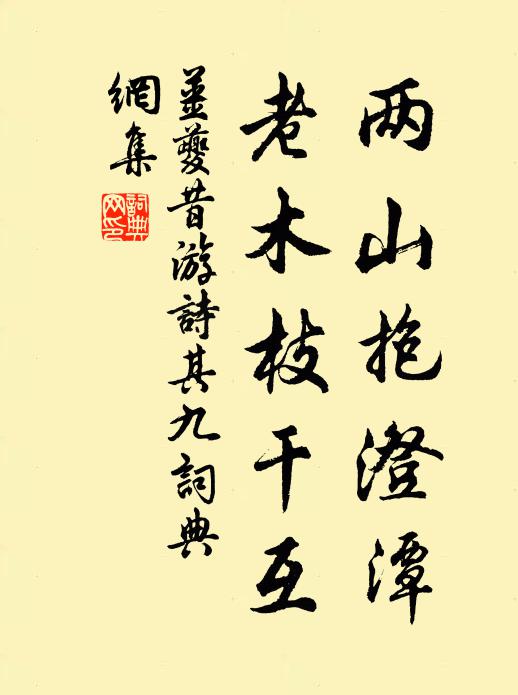 两山抱澄潭
老木枝干互
姜夔昔游詩其九詞典
網集
詞典
网印